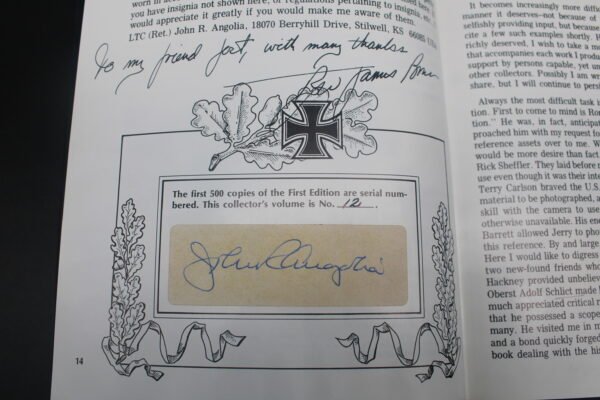 worn in
you have insignia not shown here, or regulations pertaining to insignia, etc.
would appreciate it greatly if you would make me aware of them.
LTC (Ret.) John R. Angolia, 18070 Berryhill Drive, Stilwell, KS 66085 USA
to my friend with many thanks
The first 500 copies of the First Edition are serial num-
bered. This collector's volume is No. 12.
John R Angolia
14
It becomes increasingly more diffi
manner it deserves–not because of
selfishly providing input, but because
cite a few such examples shortly. F
richly deserved, I wish to take a mo
that accompanies each work I produ
support by persons capable, yet un
other collectors. Possibly I am wr
share, but I will continue to persi
Always the most difficult task i
tion. First to come to mind is Ro
tion." He was, in fact, anticipat
proached him with my request fo
reference assets over to me. W
would be more desire than fact
Rick Sheffler. They laid before
use even though it was their inte
Terry Carlson braved the U.S.
material to be photographed, a
skill with the camera to use
otherwise unavailable. His en
Barrett allowed Jerry to phot
this reference. By and large
Here I would like to digress
two new-found friends who
Hackney provided unbeliev
Oberst Adolf Schlict made
much appreciated critical r
that he possessed a scope
many. He visited me in m
and a bond quickly forged
book dealing with the his